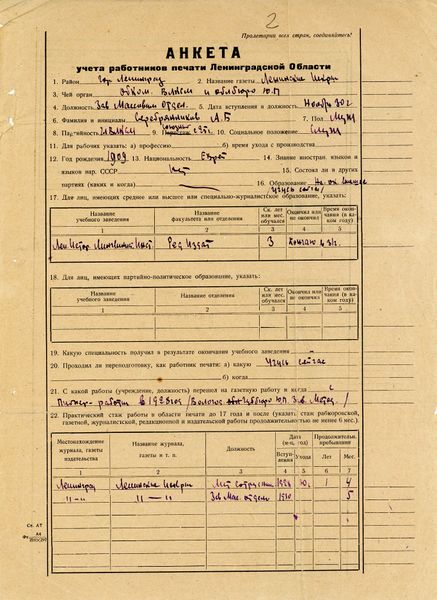 2
Пролетарии всех стран, соединяйтесь!
АНКЕТА
учета работников печати Ленинградской Области
1. Район гор. Ленинград 2. Название газеты Ленинские Искры
3. Чей орган Обком. ВЛКСМ и облбюро Ю.П
4. Должность Зав Массовым отдел. 5. Дата вступления в должность Ноябрь 30 г
6. Фамилия и инициалы Серебрянников А. Б 7. Пол Муж
8. Партийность ЧВЛКСМ 9. 10. Социальное положение Служ
11. Для рабочих указать: а) профессию б) время ухода с производства
12. Год рождения 1909 13. Национальность Еврей 14. Знание иностран. языков и
языков нар. СССР Нет 15. Состояла ли в других
партиях (каких и когда) 16. Образование
учусь сейчас
17. Для лиц, имеющих среднее или высшее или специально-журналистское образование, указать:
Название учебного заведения Название факультета или отделения Ск. лет или мес. обучался Окончила или не окончил Время окончания (в каком году)
1 2 3 4 5
Лен Истор. Лингвист. Инст. Ред Издат 3 Кончаю в
18. Для лиц, имеющих партийно-политическое образование, указать:
Название учебного заведения Название отделения Ск. лет или мес. обучался Окончил или не окончил Время окончания (в каком году)
1 2 3 4 5
19. Какую специальность получил в результате окончания учебного заведения
20. Проходил ли переподготовку, как работник печати: а) какую Учусь сейчас
б) когда
21. С какой работы (учреждение, должность) перешел на газетную работу и когда с
Пионер-работы в 1928 году
22. Практический стаж работы в области печати до 17 года и после (указат. стаж рабкоровской,
газетной, журналистской, редакционной и издательской работы продолжительностью не менее 6 мес.)
Местонахождение журнала, газеты издательства Название журнала, газеты и т. п. Должность Дата (м-ц, год) Продолжительн. пребывания
Вступления Ухода Лет Мес.
1 2 3 4 5 6 7
Ленинград Ленинские Искры Лит сотрудник 1 4
"—" "—" Зав Мас. отделом 1930 5